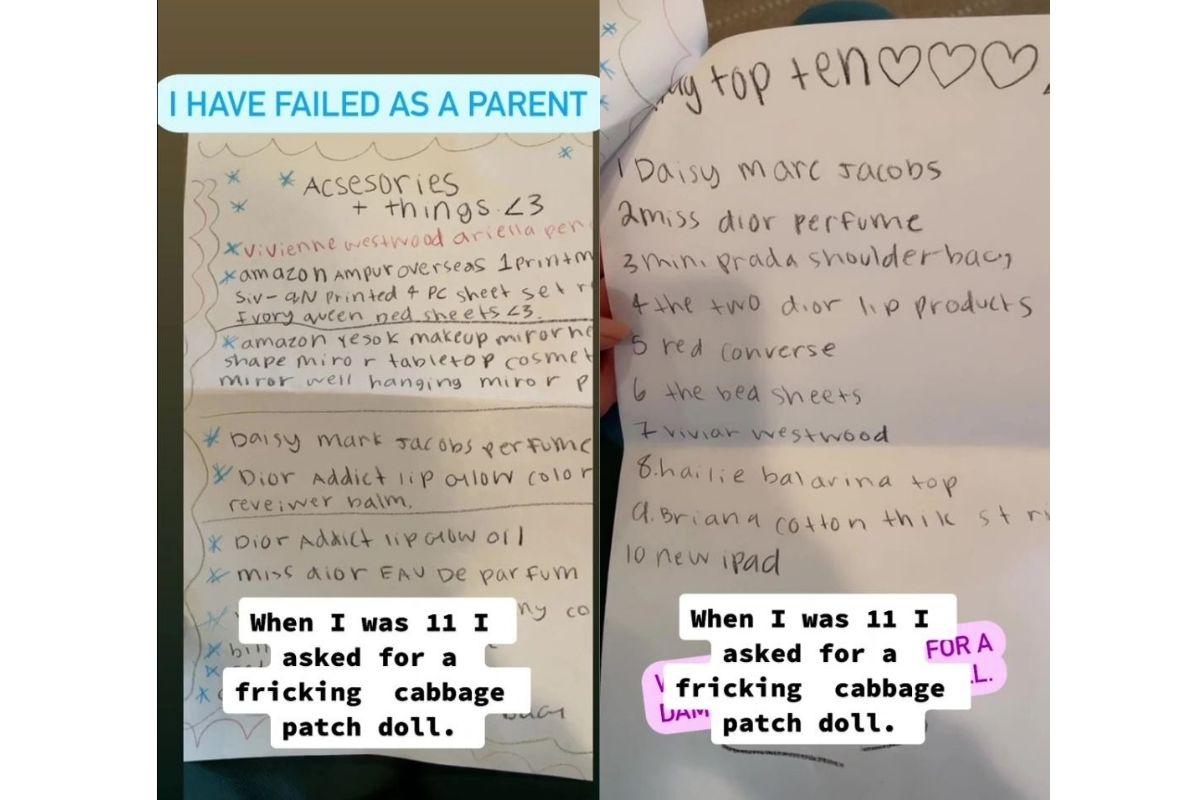 I HAVE FAILED AS A PARENT
Acsesories
+ things <3
vivienne westwood ariella pen
amazon Ampur overseas 1printm
Siv-QN Printed 4 PC sheet set
Ivory queen bed sheets <3.
amazon Yesok makeup miror he
shape miror tabletop cosmet
miror well hanging miror p
Daisy mark Jacobs perfume
Dior Addict lip glow color
reveiwer balm.
Dior Addict lip glow oil
miss dior EAU De parfum
ny co
When I was 11 I
asked for a
fricking cabbage
patch doll.
my top ten♡♡♡
1 Daisy marc Jacobs
2 miss dior perfume
3 mini prada shoulder bag
4 the two dior lip products
5 red converse
6 the bed sheets
7 viviar westwood
8. hailie balarina top
9. Briana cotton thik st ri
10 new ipad
When I was 11 I
asked for a
fricking cabbage
patch doll.
FOR A